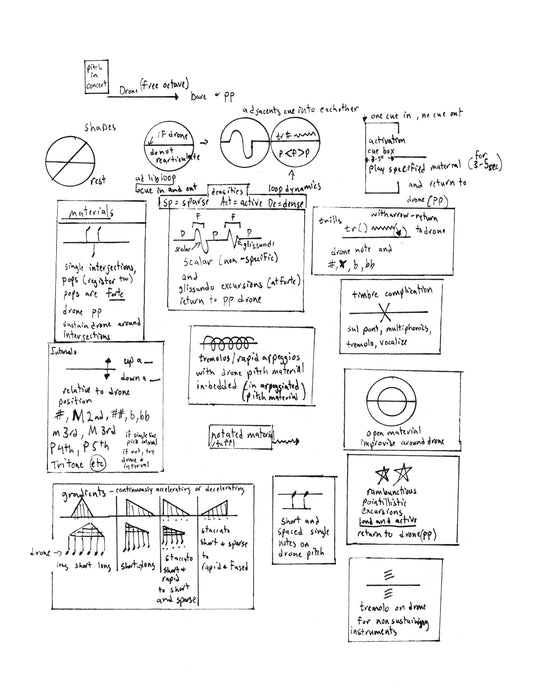 pitch
in
concert
Drone (free octave)
Dare + PP
shapes
rest
if drone
do not
rearticulate
ad lib loop
cue in and out
adjacents cue into eachother
tr #
p<F>p
loop dynamics
one cue in, no cue out
activation
cue box
3-5"
Play specified material (for 3-5sec)
and return to
drone (PP)
densities
Sp = sparse Act = active De = dense
materials
single intersections,
pops (register tm)
pops are forte
drone pp
sustain drone around
intersections
F F
P P P
scalar glissando
Scalar (non-specific)
and
glissando excursions (at forte)
return to pp drone
trills
with arrow - return
tr() to drone
drone note and
#, x, b, bb
timbre complication
sul pont, multiphonics,
tremolo, vocalize
Intervals
up a __
down a __
relative to drone
position
#, M 2nd, ##, b, bb
m 3rd, M 3rd
P 4th, P 5th
Tritone etc
if single line,
pick interval
if not, try
drone &
interval
tremolos/rapid arpeggios
with drone pitch material
in-bedded (in arpeggiated
pitch material)
notated material
(staff)
open material
improvise around drone
gradients - continuously accelerating or decelerating
drone
long short long
short long
staccato
short &
rapid
to short
and sparse
staccato
short & sparse
to
rapid & fused
short and
spaced single
notes on
drone pitch
rambunctious
pointillistic
excursions
loud and active
return to drone (pp)
tremolo on drone
for non sustaining
instruments